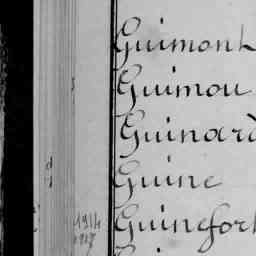 Guimont
Guimou
Guinard
Guine
1914 Guinefort
1927